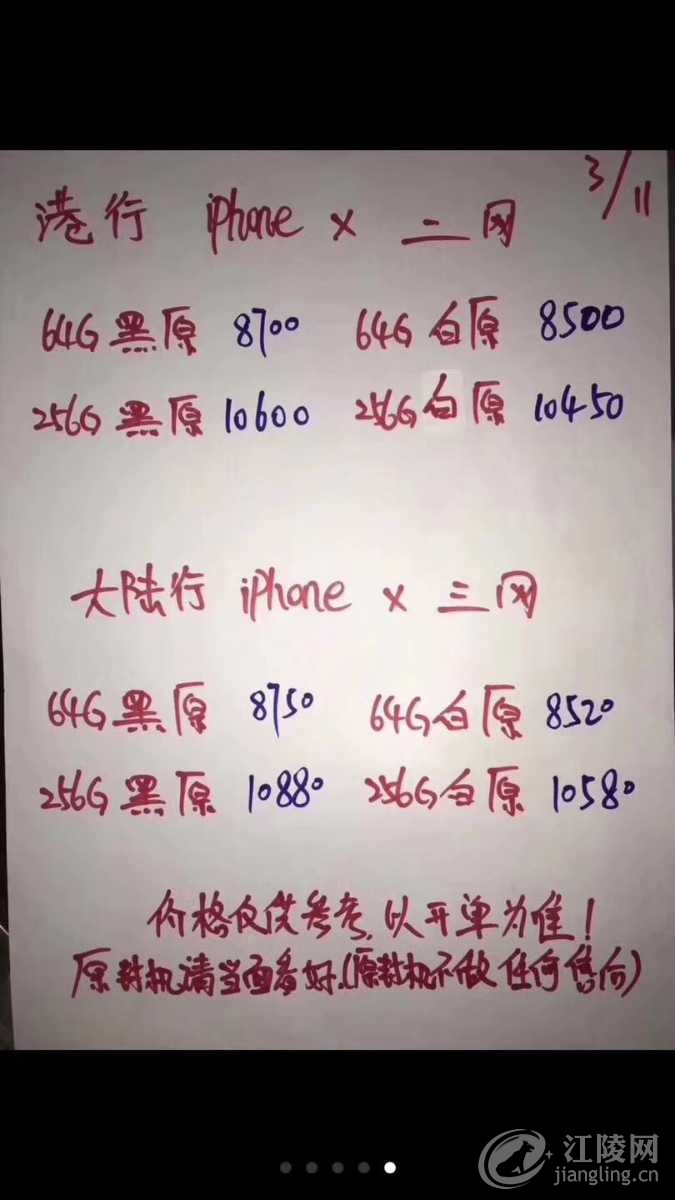 3/11
港行 iPhone X 二网
64G 黑原 8700 64G 白原 8500
256G 黑原 10600 256G 白原 10450
大陆行 iPhone X 三网
64G 黑原 8750 64G 白原 8520
256G 黑原 10880 256G 白原 10580
价格仅供参考,以开单为准!
原封机请当面看好.(原封机不做任何售后)
江陵网
jiangling.cn